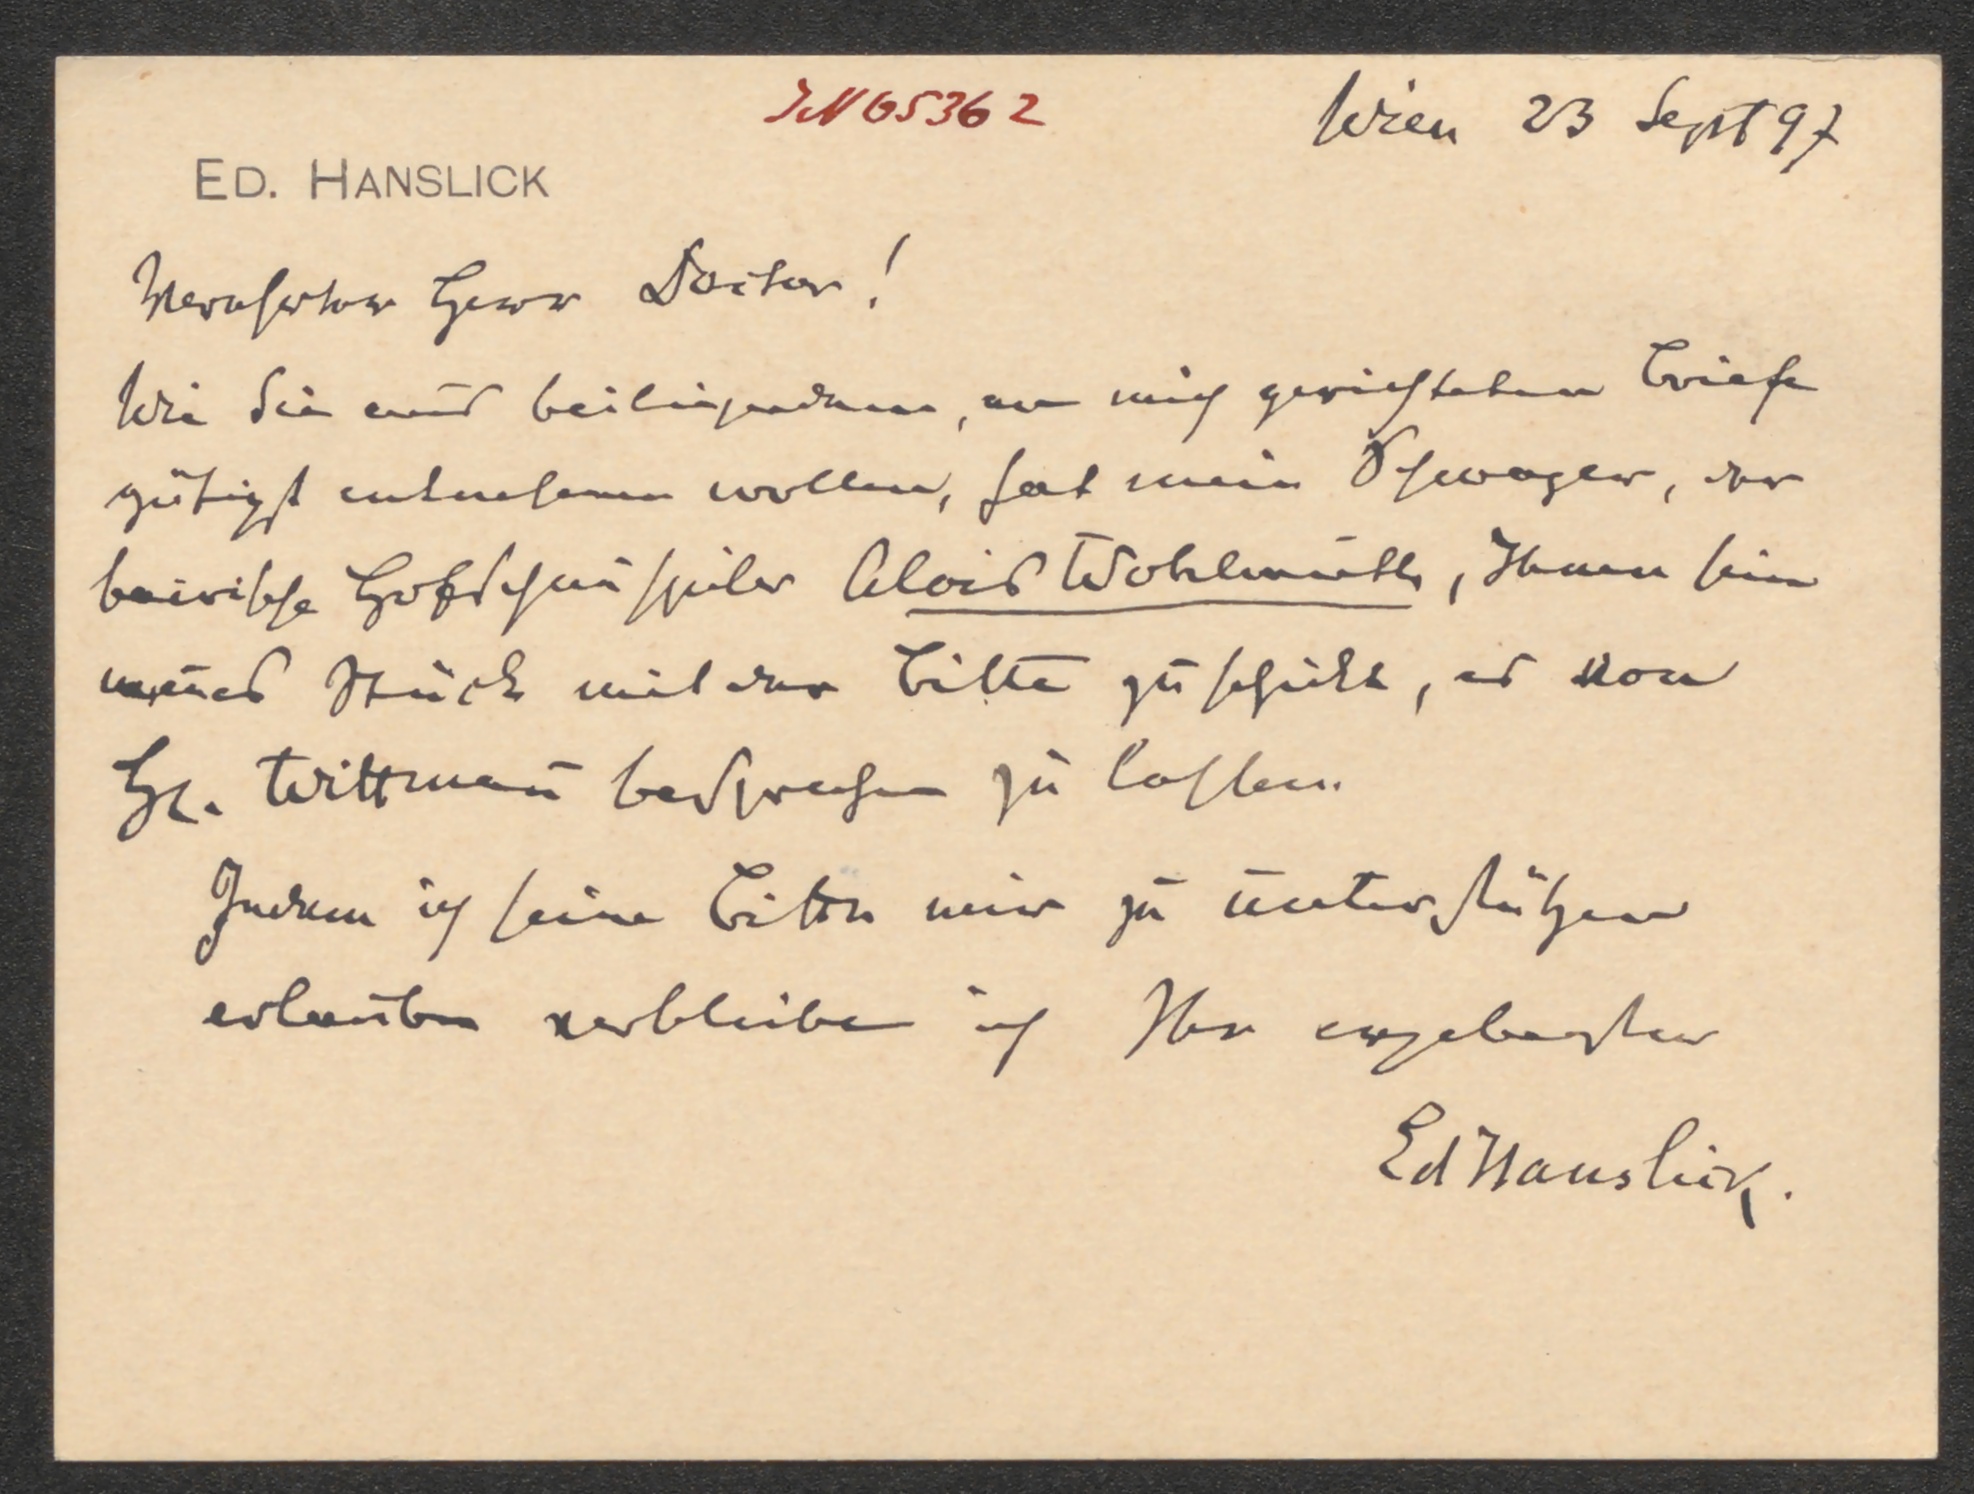 IN 65362
Wien 23 Sept 97
ED. HANSLICK
Verehrter Herr Doctor!
Wie Sie aus beiliegendem, an mich gerichteten Briefe
gütigst entnehmen wollen, hat mein Schwager, der
bairische Hofschauspieler Alois Wohlmuth, Ihnen sein
neues Stück mit der Bitte zuschickt, es von
H. Wittmann besprechen zu lassen.
Indem ich seine Bitte mir zu unterstützen
erlaube verbleibe ich Ihr ergebenster
Ed Hanslick.